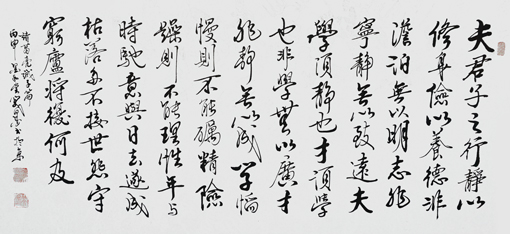 夫君子之行静以
修身儉以養德非
澹泊無以明志非
寧静無以致遠夫
學須静也才須學
也非學無以廣才
非静無以成學慆
慢則不能勵精險
躁則不能理性年与
時馳意與日去遂成
枯落多不接世悲守
窮廬將復何及
诸葛亮誡子
丙申